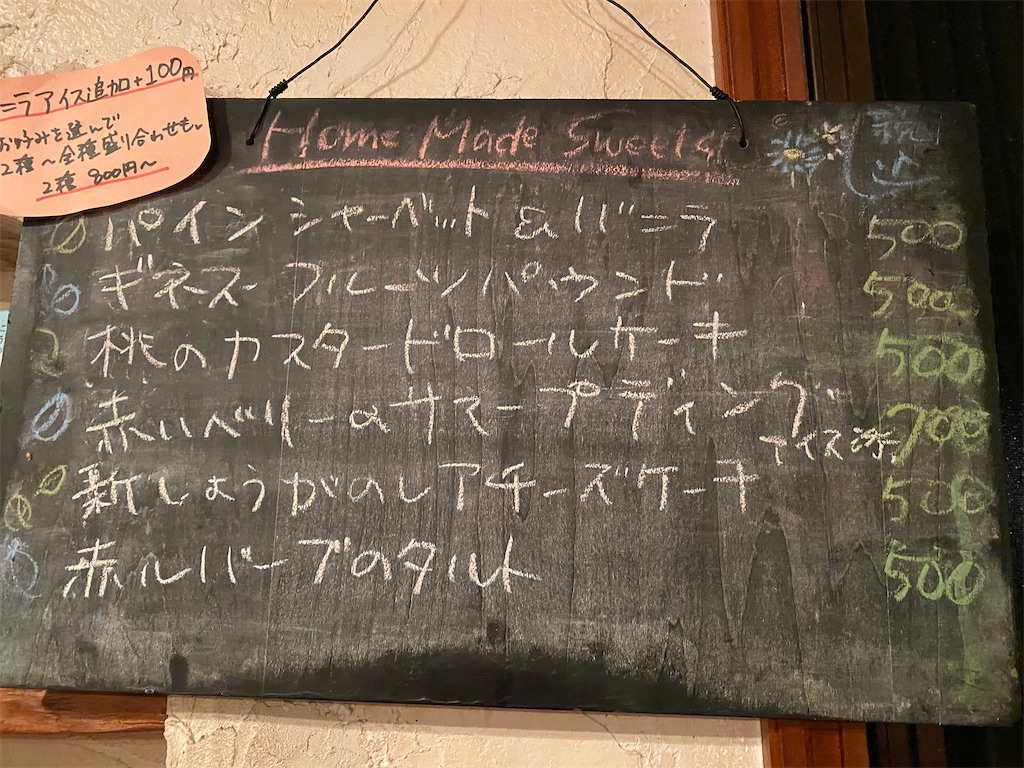 ニラアイス追加+100円
お好みを選んで
2種〜全種盛り合わせも。
2種 800円〜
Home Made Sweets
税込
パインシャーベット&バニラ 500
ギネスフルーツパウンド 500
桃のカスタードロールケーキ 500
赤いベリーのサマープディング 700
アイス添
新しょうがのレアチーズケーキ 500
赤ルバーブのタルト 500